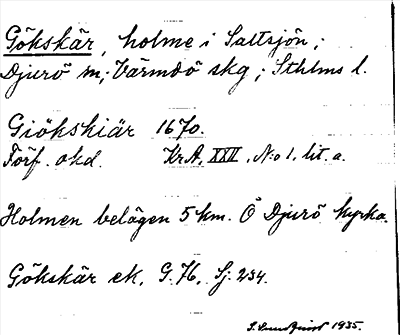 Gökskär, holme i Saltsjön;
Djurö sn; Värmdö skg; Sthlms l.
Giökskiär 1670.
Förf. okd. KrA, XXII, N:o 1, lit. a.
Holmen belägen 5 km. Ö Djurö kyrka.
Gökskär ek. G. 76, Sj: 254.
1935.